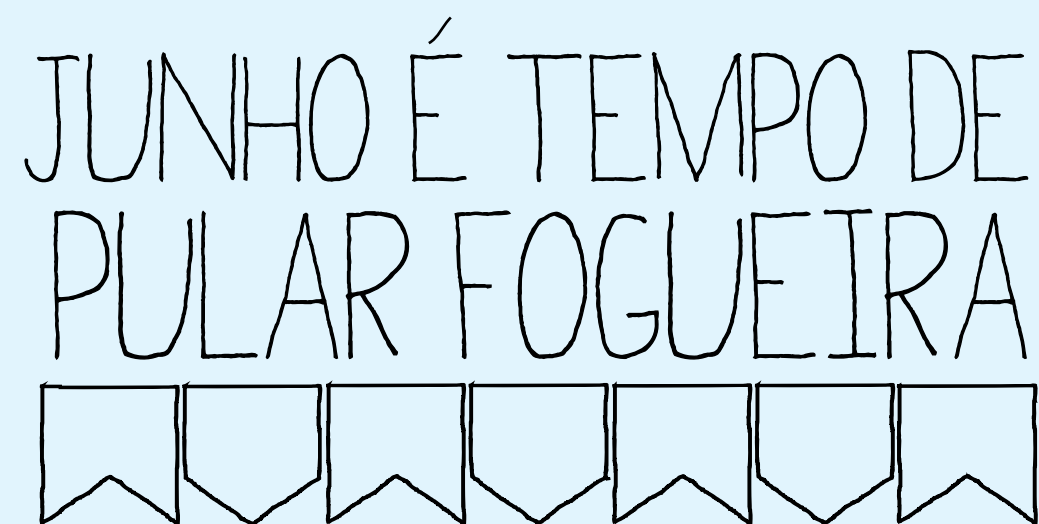 JUNHO É TEMPO DE
PULAR FOGUEIRA